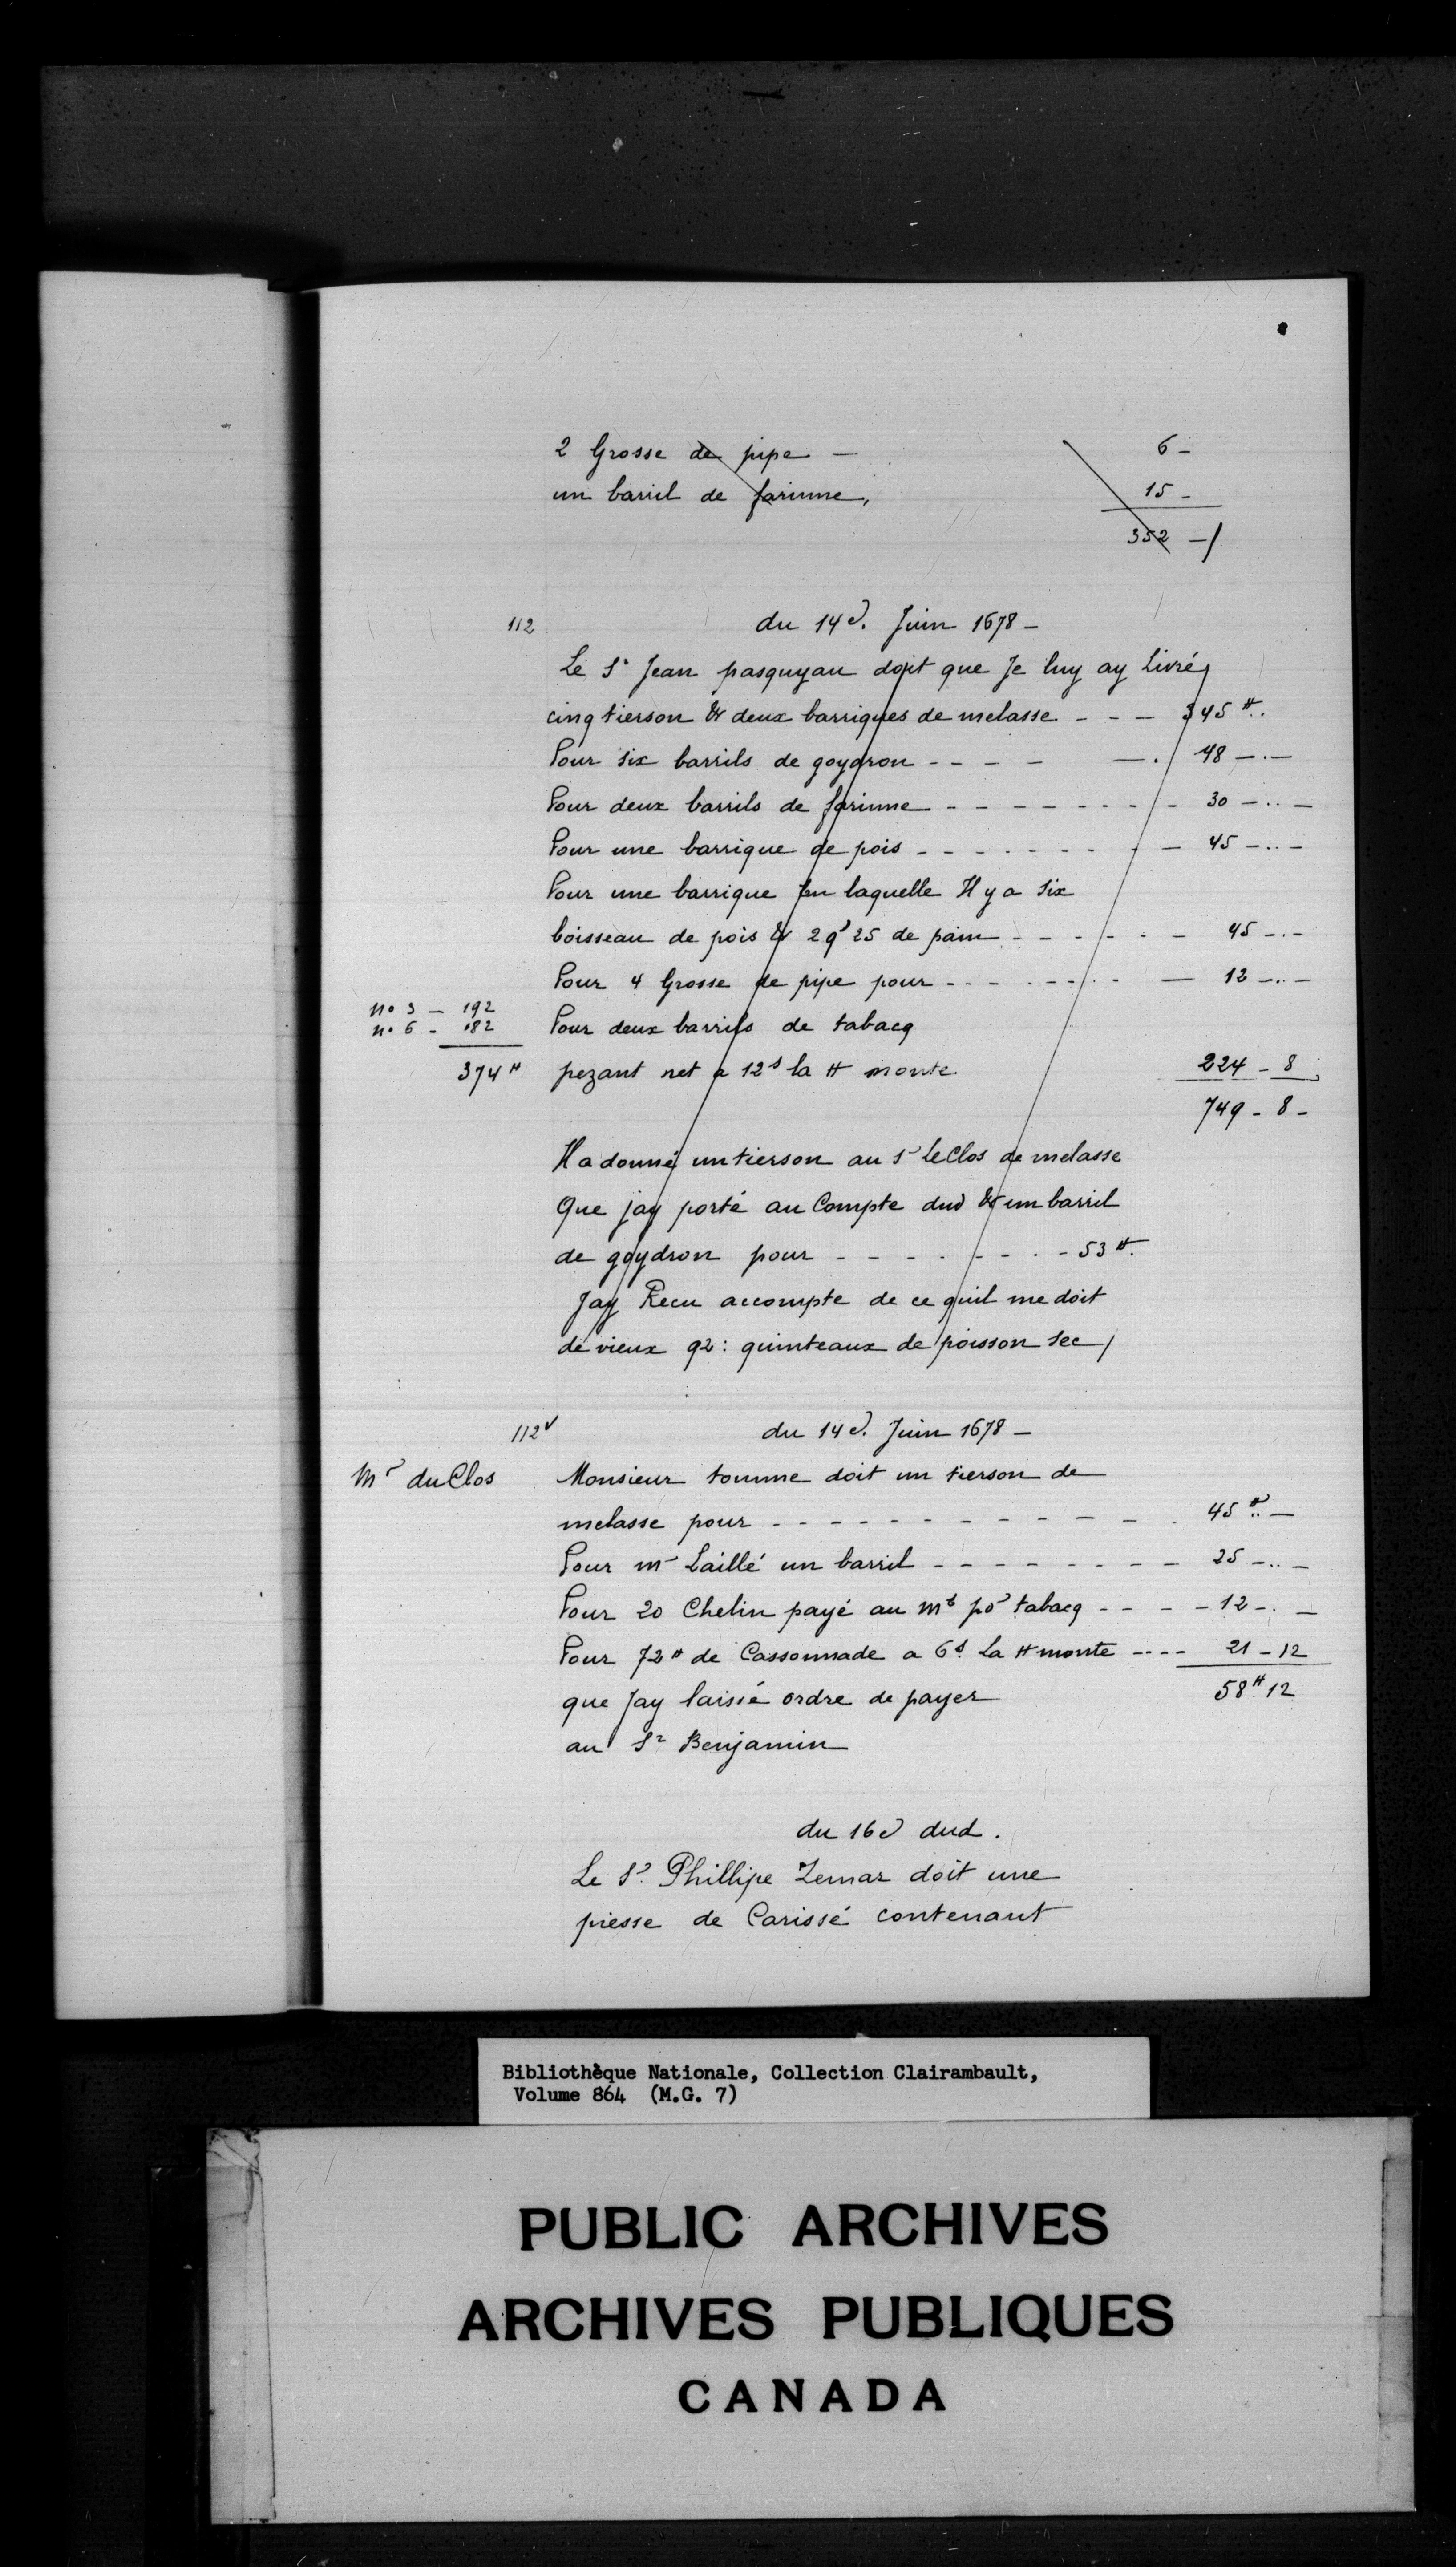 2 Grosse de pipe — 6 –
un baril de farinne, 15 –
352 –/
112 du 14e. Juin 1678 –
Le Sr Jean pasquyau doit que Je luy ay Livré,
cinq tierson & deux barriques de melasse - - — 345 ₶..
Pour six barrils de goydron - - - - —. 48 —.—
Pour deux barrils de farinne - - - - - - - - - 30 —..—
Pour une barrique de pois - - - - - - - - — 45 —..–
Pour une barrique En laquelle Il y a six
boisseau de pois & 2 qx 25 de pain - - - - - – 45 –.–
Pour 4 Grosse de pipe pour - - - - - - - — 12 –..–
no 3 — 192
no 6 – 182 Pour deux barrils de tabacq
374 ₶ pezant net a 12s la ₶ monte 224 – 8
749 – 8 –
Il a donné un tierson au Sr LeClos de melasse
Que jay porté au Compte dud & un barril
de goydron pour - - - - - - - - 53 ₶.
Jay Recu accompte de ce quil me doit
de vieux 92 : quinteaux de poisson sec /
112v du 14e. Juin 1678 –
Mr du Clos Monsieur tomme doit un tierson de
melasse pour - - - - - - - - - - - - . 45 ₶.. —
Pour mr Laillé un barril - - - - - - - - – 25 –..–
Pour 20 Chelin payé au mt por tabacq - - - - 12 –. –
Pour 72 ₶ de Cassonnade a 6s. La ₶ monte ---- 21 – 12
que Jay laissé ordre de payer 58 ₶ 12
au Sr Benjamin
du 16e dud.
Le Sr. Phillipe Zemar doit une
piesse de Carissé contenant
Bibliothèque Nationale, Collection Clairambault,
Volume 864 (M.G. 7)
PUBLIC ARCHIVES
ARCHIVES PUBLIQUES
CANADA